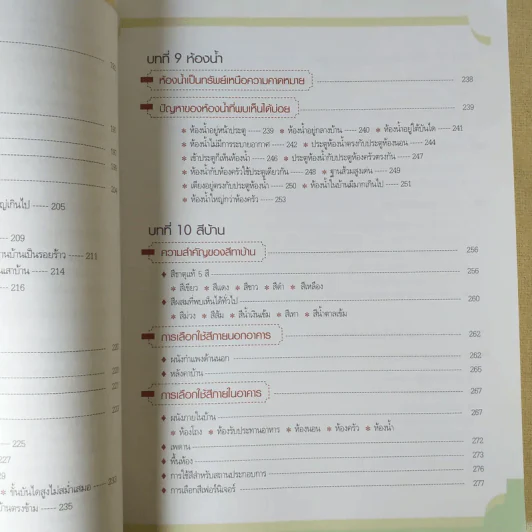 205
209
211
214
216
225
227
ชั้นบันไดสูงไม่สม่ำเสมอ
235
บทที่ 9 ห้องน้ำ
ห้องน้ำเป็นทรัพย์เหนือความคาดหมาย 238
ปัญหาของห้องน้ำที่พบเห็นได้บ่อย 239
* ห้องน้ำอยู่หน้าประตู ----- 239 * ห้องน้ำอยู่กลางบ้าน ----- 240 * ห้องน้ำอยู่ใต้บันได ----- 241
* ห้องน้ำไม่มีการระบายอากาศ ----- 242 * ประตูห้องน้ำตรงกับประตูห้องนอน ----- 244
* เข้าประตูก็เห็นห้องน้ำ ----- 246 * ประตูห้องน้ำกับประตูห้องครัวตรงกัน ----- 247
* ห้องน้ำกับห้องครัวใช้ประตูเดียวกัน ----- 248 * ฐานส้วมสูงเด่น ----- 249
* เตียงอยู่ตรงกับประตูห้องน้ำ ----- 250 * ห้องน้ำในบ้านมีมากเกินไป ----- 251
* ห้องน้ำใหญ่กว่าห้องครัว ----- 253
บทที่ 10 สีบ้าน
ความสำคัญของสีทาบ้าน 256
♦ สีธาตุแท้ 5 สี 256
* สีเขียว * สีแดง * สีขาว * สีดำ * สีเหลือง
♦ สีผสมที่พบเห็นได้ทั่วไป 260
* สีม่วง * สีส้ม * สีน้ำเงินเข้ม * สีเทา * สีน้ำตาลเข้ม
การเลือกใช้สีภายนอกอาคาร 262
♦ ผนังกำแพงด้านนอก 262
♦ หลังคาบ้าน 265
การเลือกใช้สีภายในอาคาร 267
♦ ผนังภายในบ้าน 267
* ห้องโถง * ห้องรับประทานอาหาร * ห้องนอน * ห้องครัว * ห้องน้ำ
♦ เพดาน 272
♦ พื้นห้อง 273
♦ การใช้สีสำหรับสถานประกอบการ 276
♦ การเลือกสีเฟอร์นิเจอร์ 277